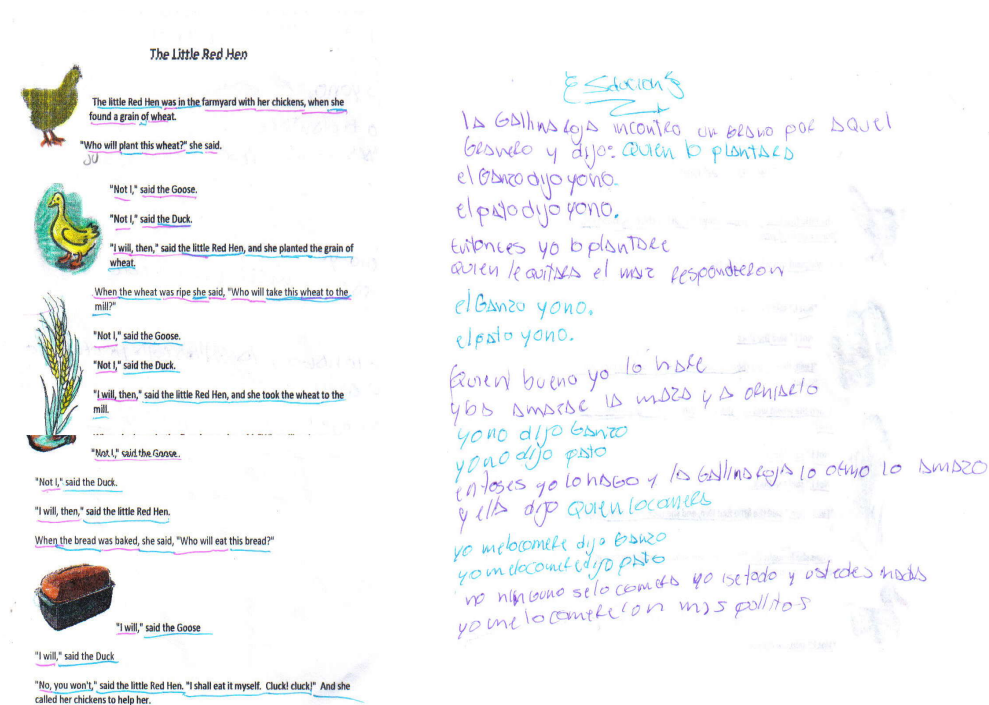 The Little Red Hen
The little Red Hen was in the farmyard with her chickens, when she
found a grain of wheat.
"Who will plant this wheat?" she said.
"Not I," said the Goose.
"Not I," said the Duck.
"I will, then," said the little Red Hen, and she planted the grain of
wheat.
When the wheat was ripe she said, "Who will take this wheat to the
mill?"
"Not I," said the Goose.
"Not I," said the Duck.
"I will, then," said the little Red Hen, and she took the wheat to the
mill.
"Not I," said the Goose.
"Not I," said the Duck.
"I will, then," said the little Red Hen.
When the bread was baked, she said, "Who will eat this bread?"
"I will," said the Goose
"I will," said the Duck
"No, you won't," said the little Red Hen. "I shall eat it myself. Cluck! cluck!" And she
called her chickens to help her.
la Gallina roja incontro un grano por aquel
Granero y dijo: Quien lo plantara
el Ganzo dijo yono.
el pato dijo yono.
Entonces yo lo plantare
quien le quitara el maz respondieron
el Ganzo yono.
el pato yono.
Quien bueno yo lo hare
y la masa y a orniarlo
yo no dijo Ganzo
yo no dijo pato
entoses yo lo hago y la Gallina roja lo orno lo amazo
y ella dijo Quien locomera
yo melocomere dijo Ganzo
yo melocomere dijo pato
no ninguno selo comera yo ise todo y ustedes nada
yo me lo comere con mis pollitos